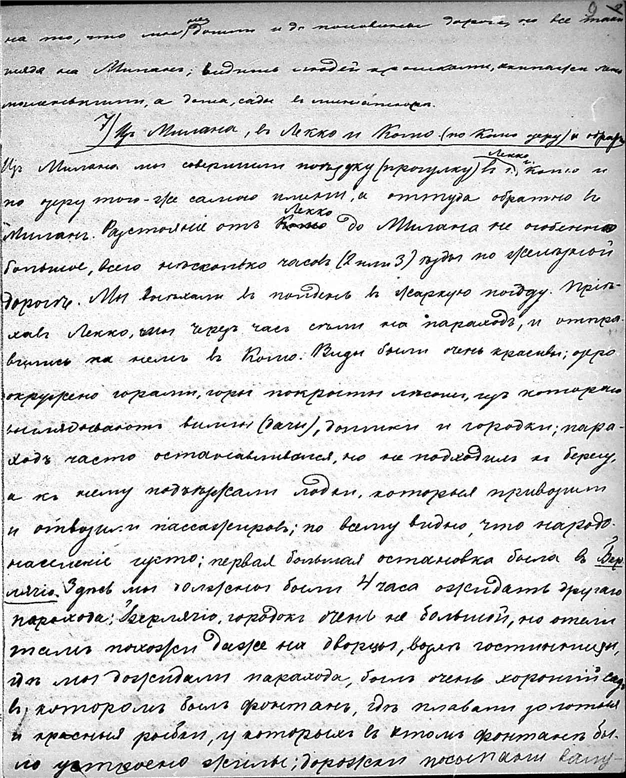 на то, что мы не дошли и до половины дороги, но все таки
глядя на Миланъ, видишь людей крошками, экипажи
а дома, сады въ миніатюрѣ.
7) Изъ Милана, въ Лекко и Комо (по Комо озеру) и обрат.
Изъ Милана мы совершили поѣздку (прогулку) въ г. Лекко, Комо и
по озеру того-же самаго имени, а оттуда обратно въ
Миланъ. Разстояніе отъ Комо Лекко до Милана не особенно
большое, всего нѣсколько часовъ (2 или 3) ѣзды по желѣзной
дорогѣ. Мы выѣхали въ полдень въ жаркую погоду. Пріѣ-
хавъ Лекко, мы черезъ часъ сѣли на параходъ, и отпра-
вились на немъ въ Комо. Виды были очень красивы; озеро
окружено горами, горы покрыты лѣсами, изъ котораго
выглядываютъ виллы (дачи), домики и городки; пара-
ходъ часто останавливался, но не подходилъ къ берегу,
а къ нему подъѣзжали лодки, которыя привозили
и отвозили пассажировъ; по всему видно, что народо-
населеніе густо; первая большая остановка была въ Бер-
лячіо. Здѣсь мы должны были 4 часа ожидать другаго
парахода; Берлячіо, городокъ очень не большой, но отели
тамъ похожи даже на дворцы, возлѣ гостинницы,
гдѣ мы дожидали парахода, былъ очень хорошій садъ
въ которомъ былъ фонтанъ, гдѣ плавали золотыя
и красныя рыбки, у которыхъ въ этомъ фонтанѣ бы-
ло устроено жилье; дорожки посыпаны каму-